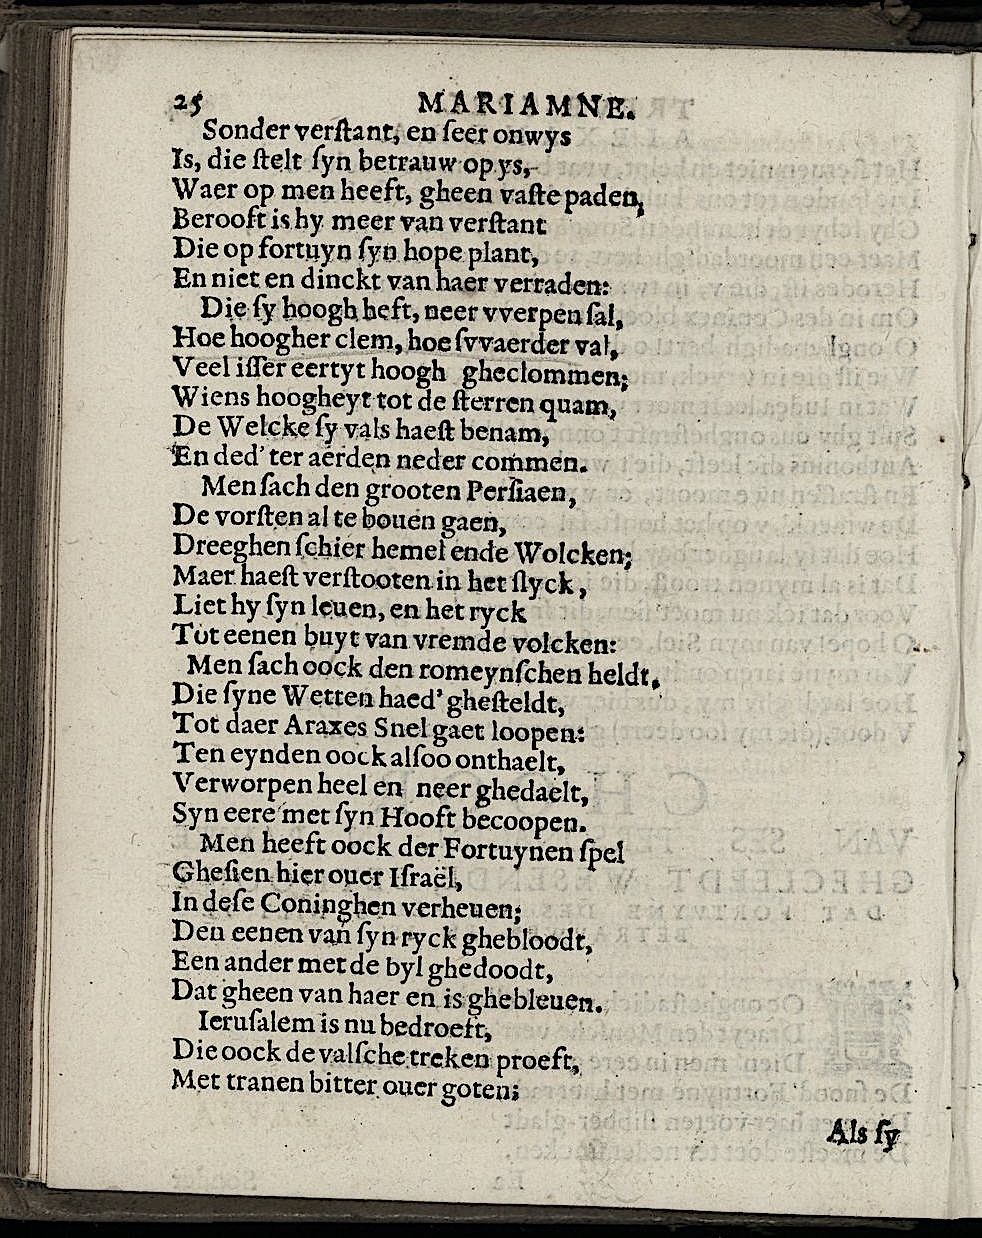 25 MARIAMNE.
Sonder verſtant, en ſeer onwys
Is, die ſtelt ſyn betrauw op ys,
Waer op men heeft, gheen vaſte paden,
Berooft is hy meer van verſtant
Die op fortuyn ſyn hope plant,
En niet en dinckt van haer verraden:
Die ſy hoogh heft, neer vverpen ſal,
Hoe hoogher clem, hoe ſvvaerder val,
Veel iſſer eertyt hoogh gheclommen;
Wiens hoogheyt tot de ſterren quam,
De Welcke ſy vals haeſt benam,
En ded' ter aerden neder commen.
Men ſach den grooten Perſiaen,
De vorſten al te bouen gaen,
Dreeghen ſchier hemel ende Wolcken;
Maer haeſt verſtooten in het ſlyck,
Liet hy ſyn leuen, en het ryck
Tot eenen buyt van vremde volcken:
Men ſach oock den romeynſchen heldt,
Die ſyne Wetten haed' gheſteldt,
Tot daer Araxes Snel gaet loopen:
Ten eynden oock alſoo onthaelt,
Verworpen heel en neer ghedaelt,
Syn eere met ſyn Hooft becoopen.
Men heeft oock der Fortuynen ſpel
Gheſien hier ouer Iſraël,
In deſe Coninghen verheuen;
Den eenen van ſyn ryck ghebloodt,
Een ander met de byl ghedoodt,
Dat gheen van haer en is ghebleuen.
Ieruſalem is nu bedroeft,
Die oock de valſche treken proeft,
Met tranen bitter ouer goten;
Als ſy